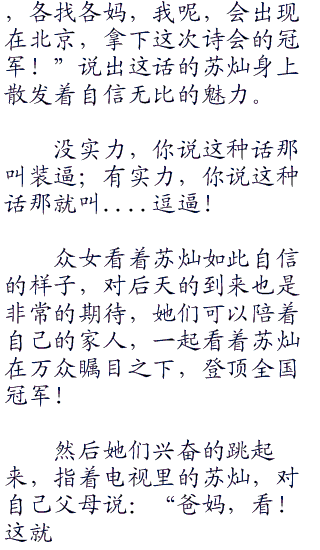 ，各找各妈，我呢，会出现
在北京，拿下这次诗会的冠
军！”说出这话的苏灿身上
散发着自信无比的魅力。
没实力，你说这种话那
叫装逼；有实力，你说这种
话那就叫....逗逼！
众女看着苏灿如此自信
的样子，对后天的到来也是
非常的期待，她们可以陪着
自己的家人，一起看着苏灿
在万众瞩目之下，登顶全国
冠军！
然后她们兴奋的跳起
来，指着电视里的苏灿，对
自己父母说：“爸妈，看！
这就